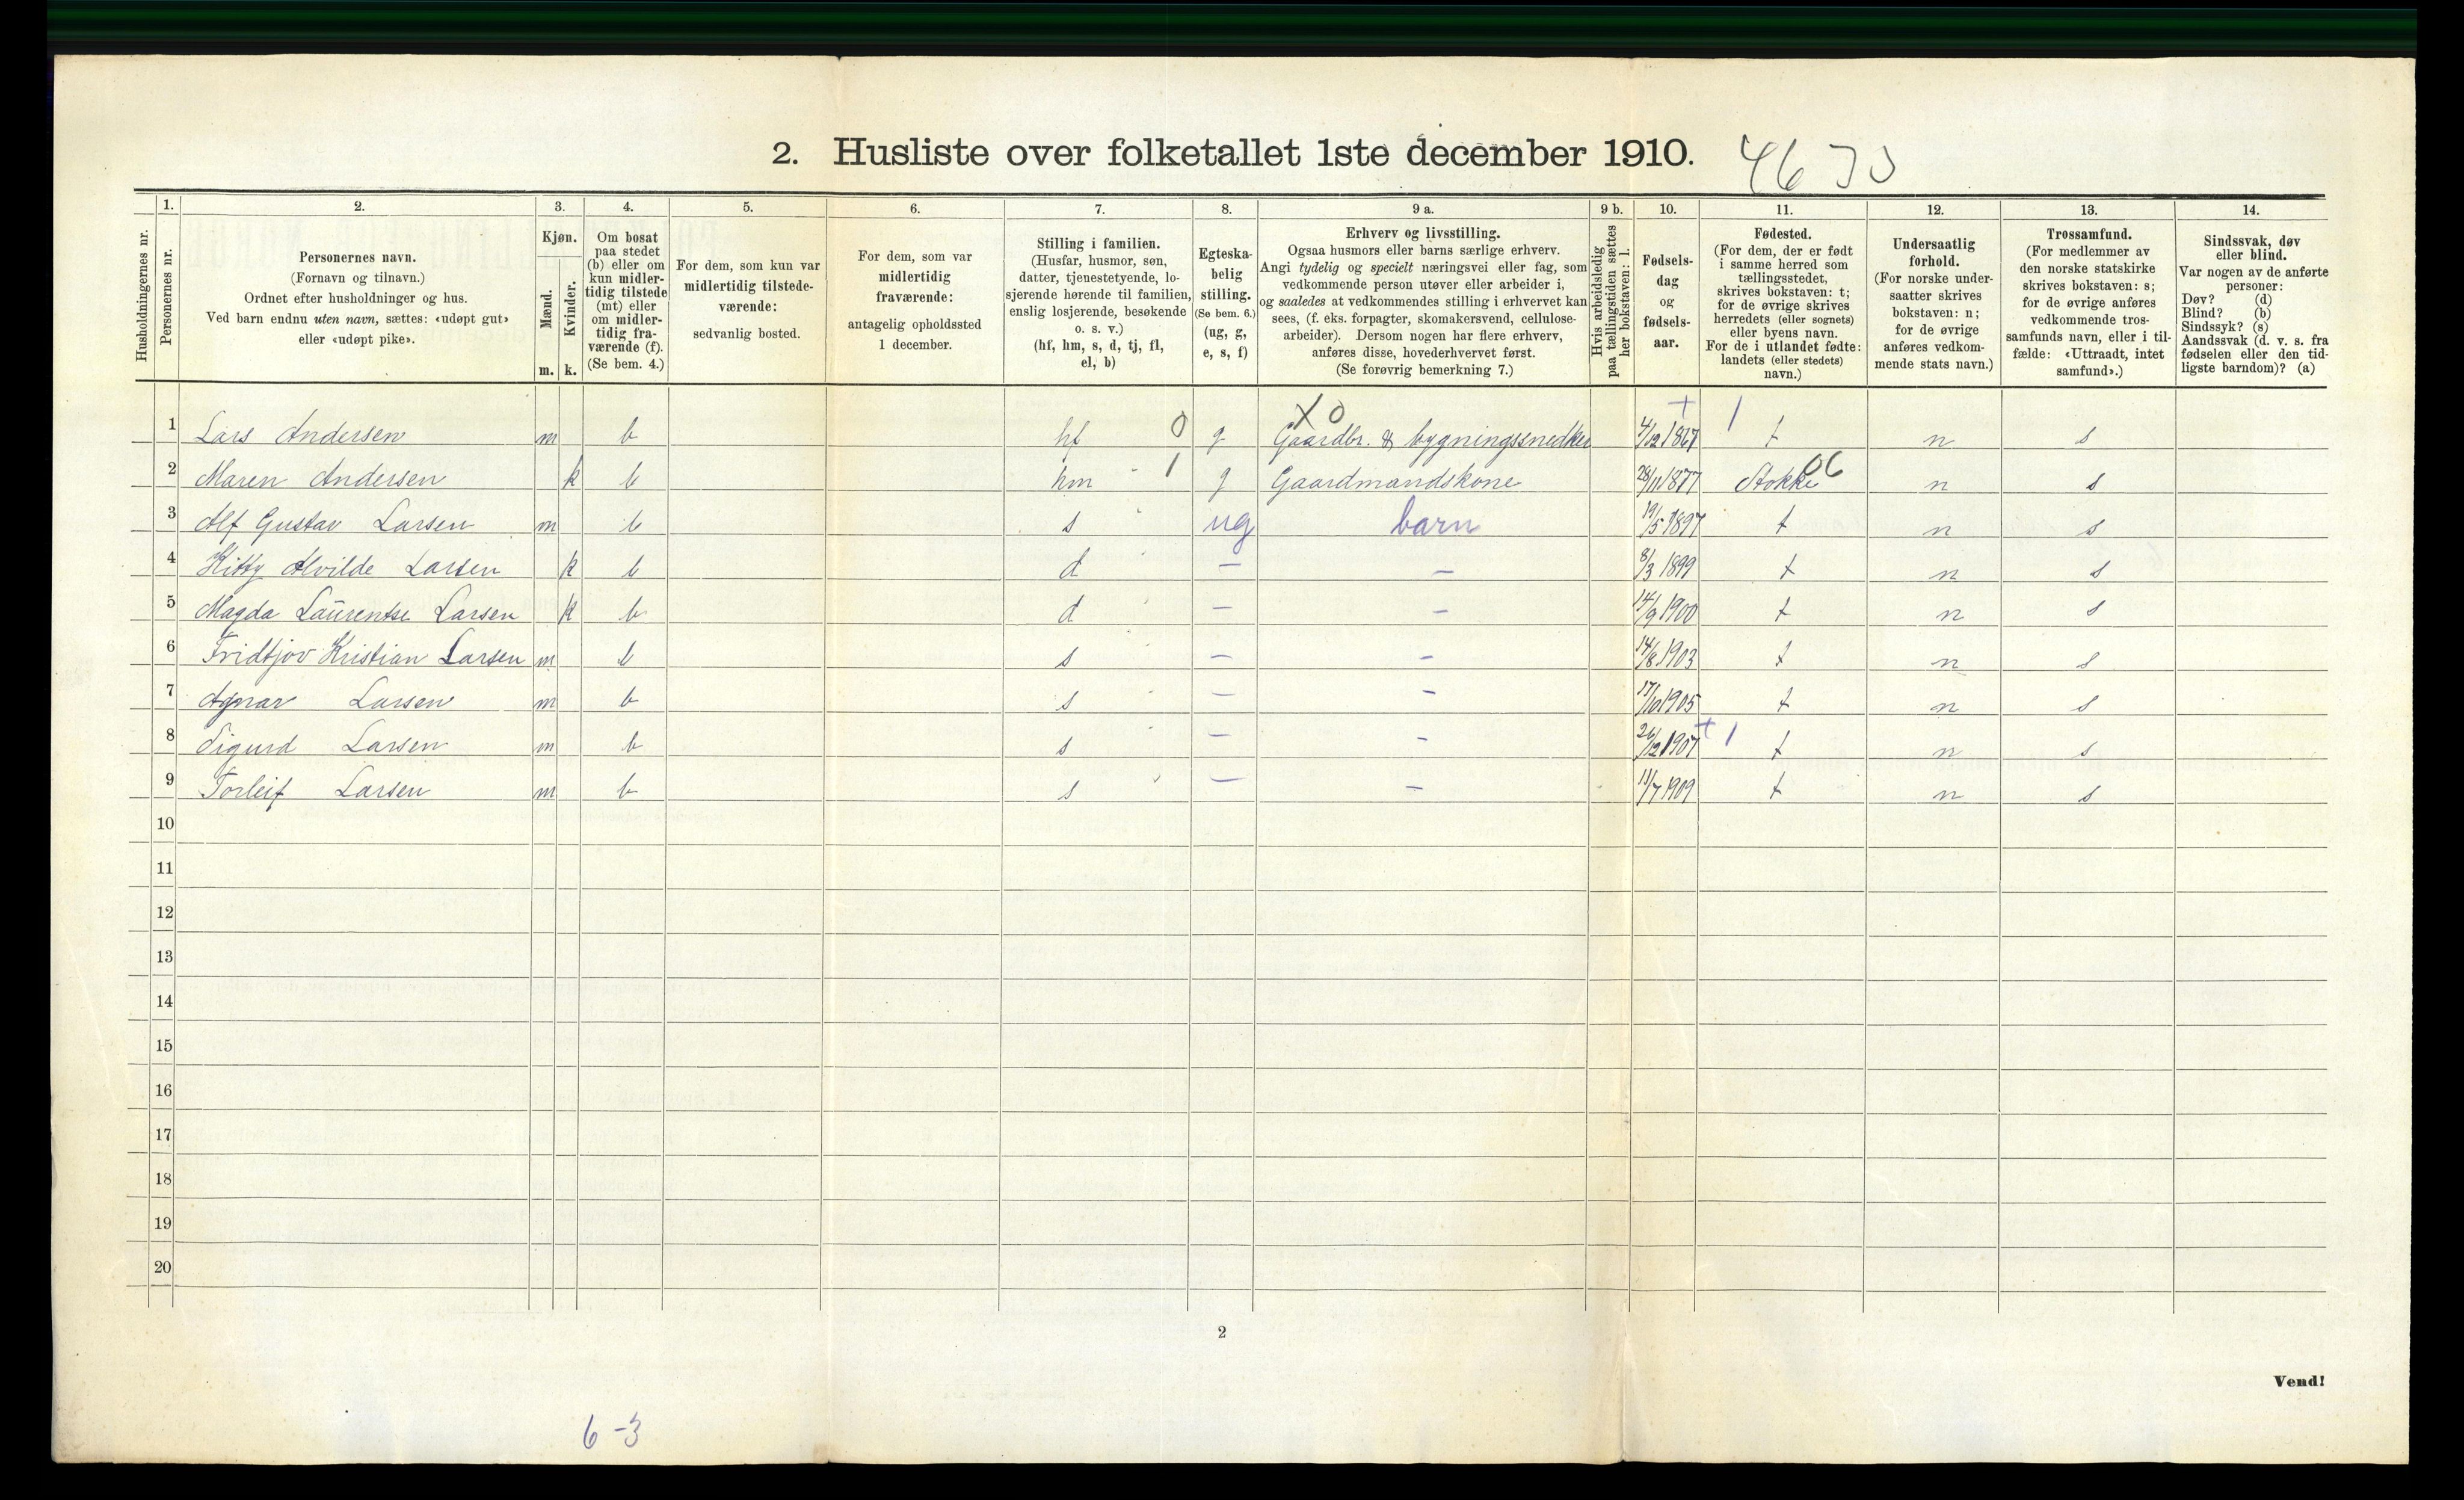 2. Husliste over folketallet 1ste december 1910.
1. 2. 3. 4. 5. 6. 7. 8. 9 a. 9 b. 10. 11. 12. 13. 14.
Husholdningernes nr.
Personernes nr.
Personernes navn.
(Fornavn og tilnavn.)
Ordnet efter husholdninger og hus.
Ved barn endnu uten navn, sættes: «udøpt gut»
eller «udøpt pike».
Kjøn.
Mænd.
Kvinder.
m. k.
Om bosat
paa stedet
(b) eller om
kun midler-
tidig tilstede
(mt) eller
om midler-
tidig fra-
værende (f).
(Se bem. 4.)
For dem, som kun var
midlertidig tilstede-
værende:
sedvanlig bosted.
For dem, som var
midlertidig
fraværende:
antagelig opholdssted
1 december.
Stilling i familien.
(Husfar, husmor, søn,
datter, tjenestetyende, lo-
sjerende hørende til familien,
enslig losjerende, besøkende
o. s. v.)
(hf, hm, s, d, tj, fl,
el, b)
Egteska-
belig
stilling.
(Se bem. 6.)
(ug, g,
e, s, f)
Erhverv og livsstilling.
Ogsaa husmors eller barns særlige erhverv.
Angi tydelig og specielt næringsvei eller fag, som
vedkommende person utøver eller arbeider i,
og saaledes at vedkommendes stilling i erhvervet kan
sees, (f. eks. forpagter, skomakersvend, cellulose-
arbeider). Dersom nogen har flere erhverv,
anføres disse, hovederhvervet først.
(Se forøvrig bemerkning 7.)
Hvis arbeidsledig
paa tællingstiden sættes
her bokstaven: l.
Fødsels-
dag
og
fødsels-
aar.
Fødested.
(For dem, der er født
i samme herred som
tællingsstedet,
skrives bokstaven: t;
for de øvrige skrives
herredets (eller sognets)
eller byens navn.
For de i utlandet fødte:
landets (eller stedets)
navn.)
Undersaatlig
forhold.
(For norske under-
saatter skrives
bokstaven: n;
for de øvrige
anføres vedkom-
mende stats navn.)
Trossamfund.
(For medlemmer av
den norske statskirke
skrives bokstaven: s;
for de øvrige anføres
vedkommende tros-
samfunds navn, eller i til-
fælde: «Uttraadt, intet
samfund».)
Sindssvak, døv
eller blind.
Var nogen av de anførte
personer:
Døv? (d)
Blind? (b)
Sindssyk? (s)
Aandssvak (d. v. s. fra
fødselen eller den tid-
ligste barndom)? (a)
1 Lars Andersen m b hf 0 g X 0 Gaardbr. & bygningssnedker 4/12 1867 + 1 t n s
2 Maren Andersen k b hm 1 g Gaardmandskone 28/11 1877 Stokke 06 n s
3 Alf Gustav Larsen m b s ug barn 19/5 1897 t n s
4 Kitty Alvilde Larsen k b d — — 8/3 1899 t n s
5 Magda Laurentse Larsen k b d — — 14/9 1900 t n s
6 Fridtjov Kristian Larsen m b s — — 14/8 1903 t n s
7 Agnar Larsen m b s — — 17/10 1905 t n s
8 Sigurd Larsen m b s — — 26/12 1907 + 1 t n s
9 Torleif Larsen m b s — — 11/7 1909 t n s
10
11
12
13
14
15
16
17
18
19
20
2
Vend!
6 - 3